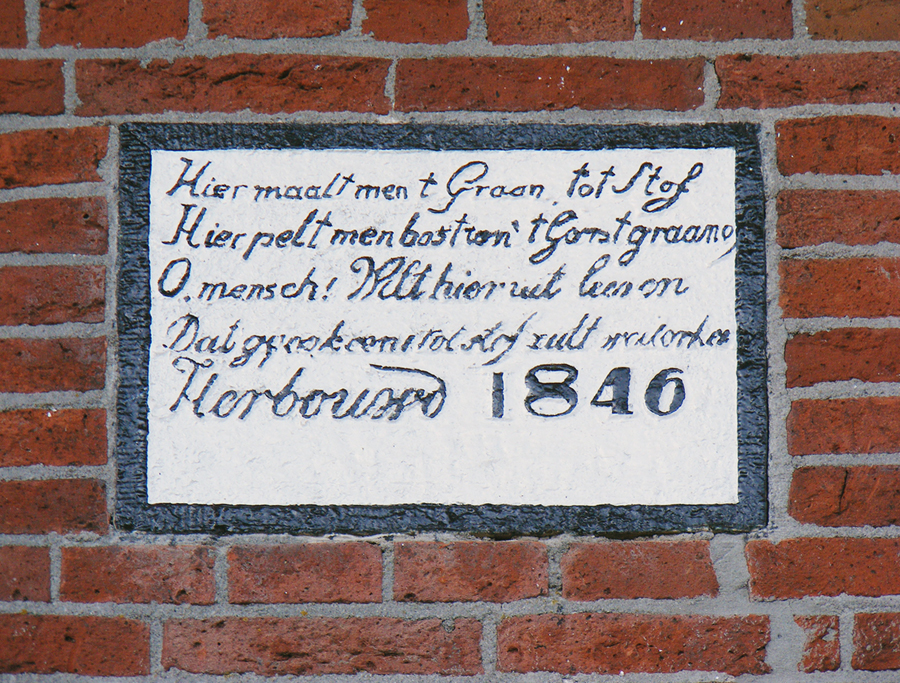 Hier maalt men t Graan, tot Stof
Hier pelt men bast van 't Gorstgraan of
O, mensch! Wilt hier uit leeren
Dat gy ook eens tot stof zult
Herbouwd 1846